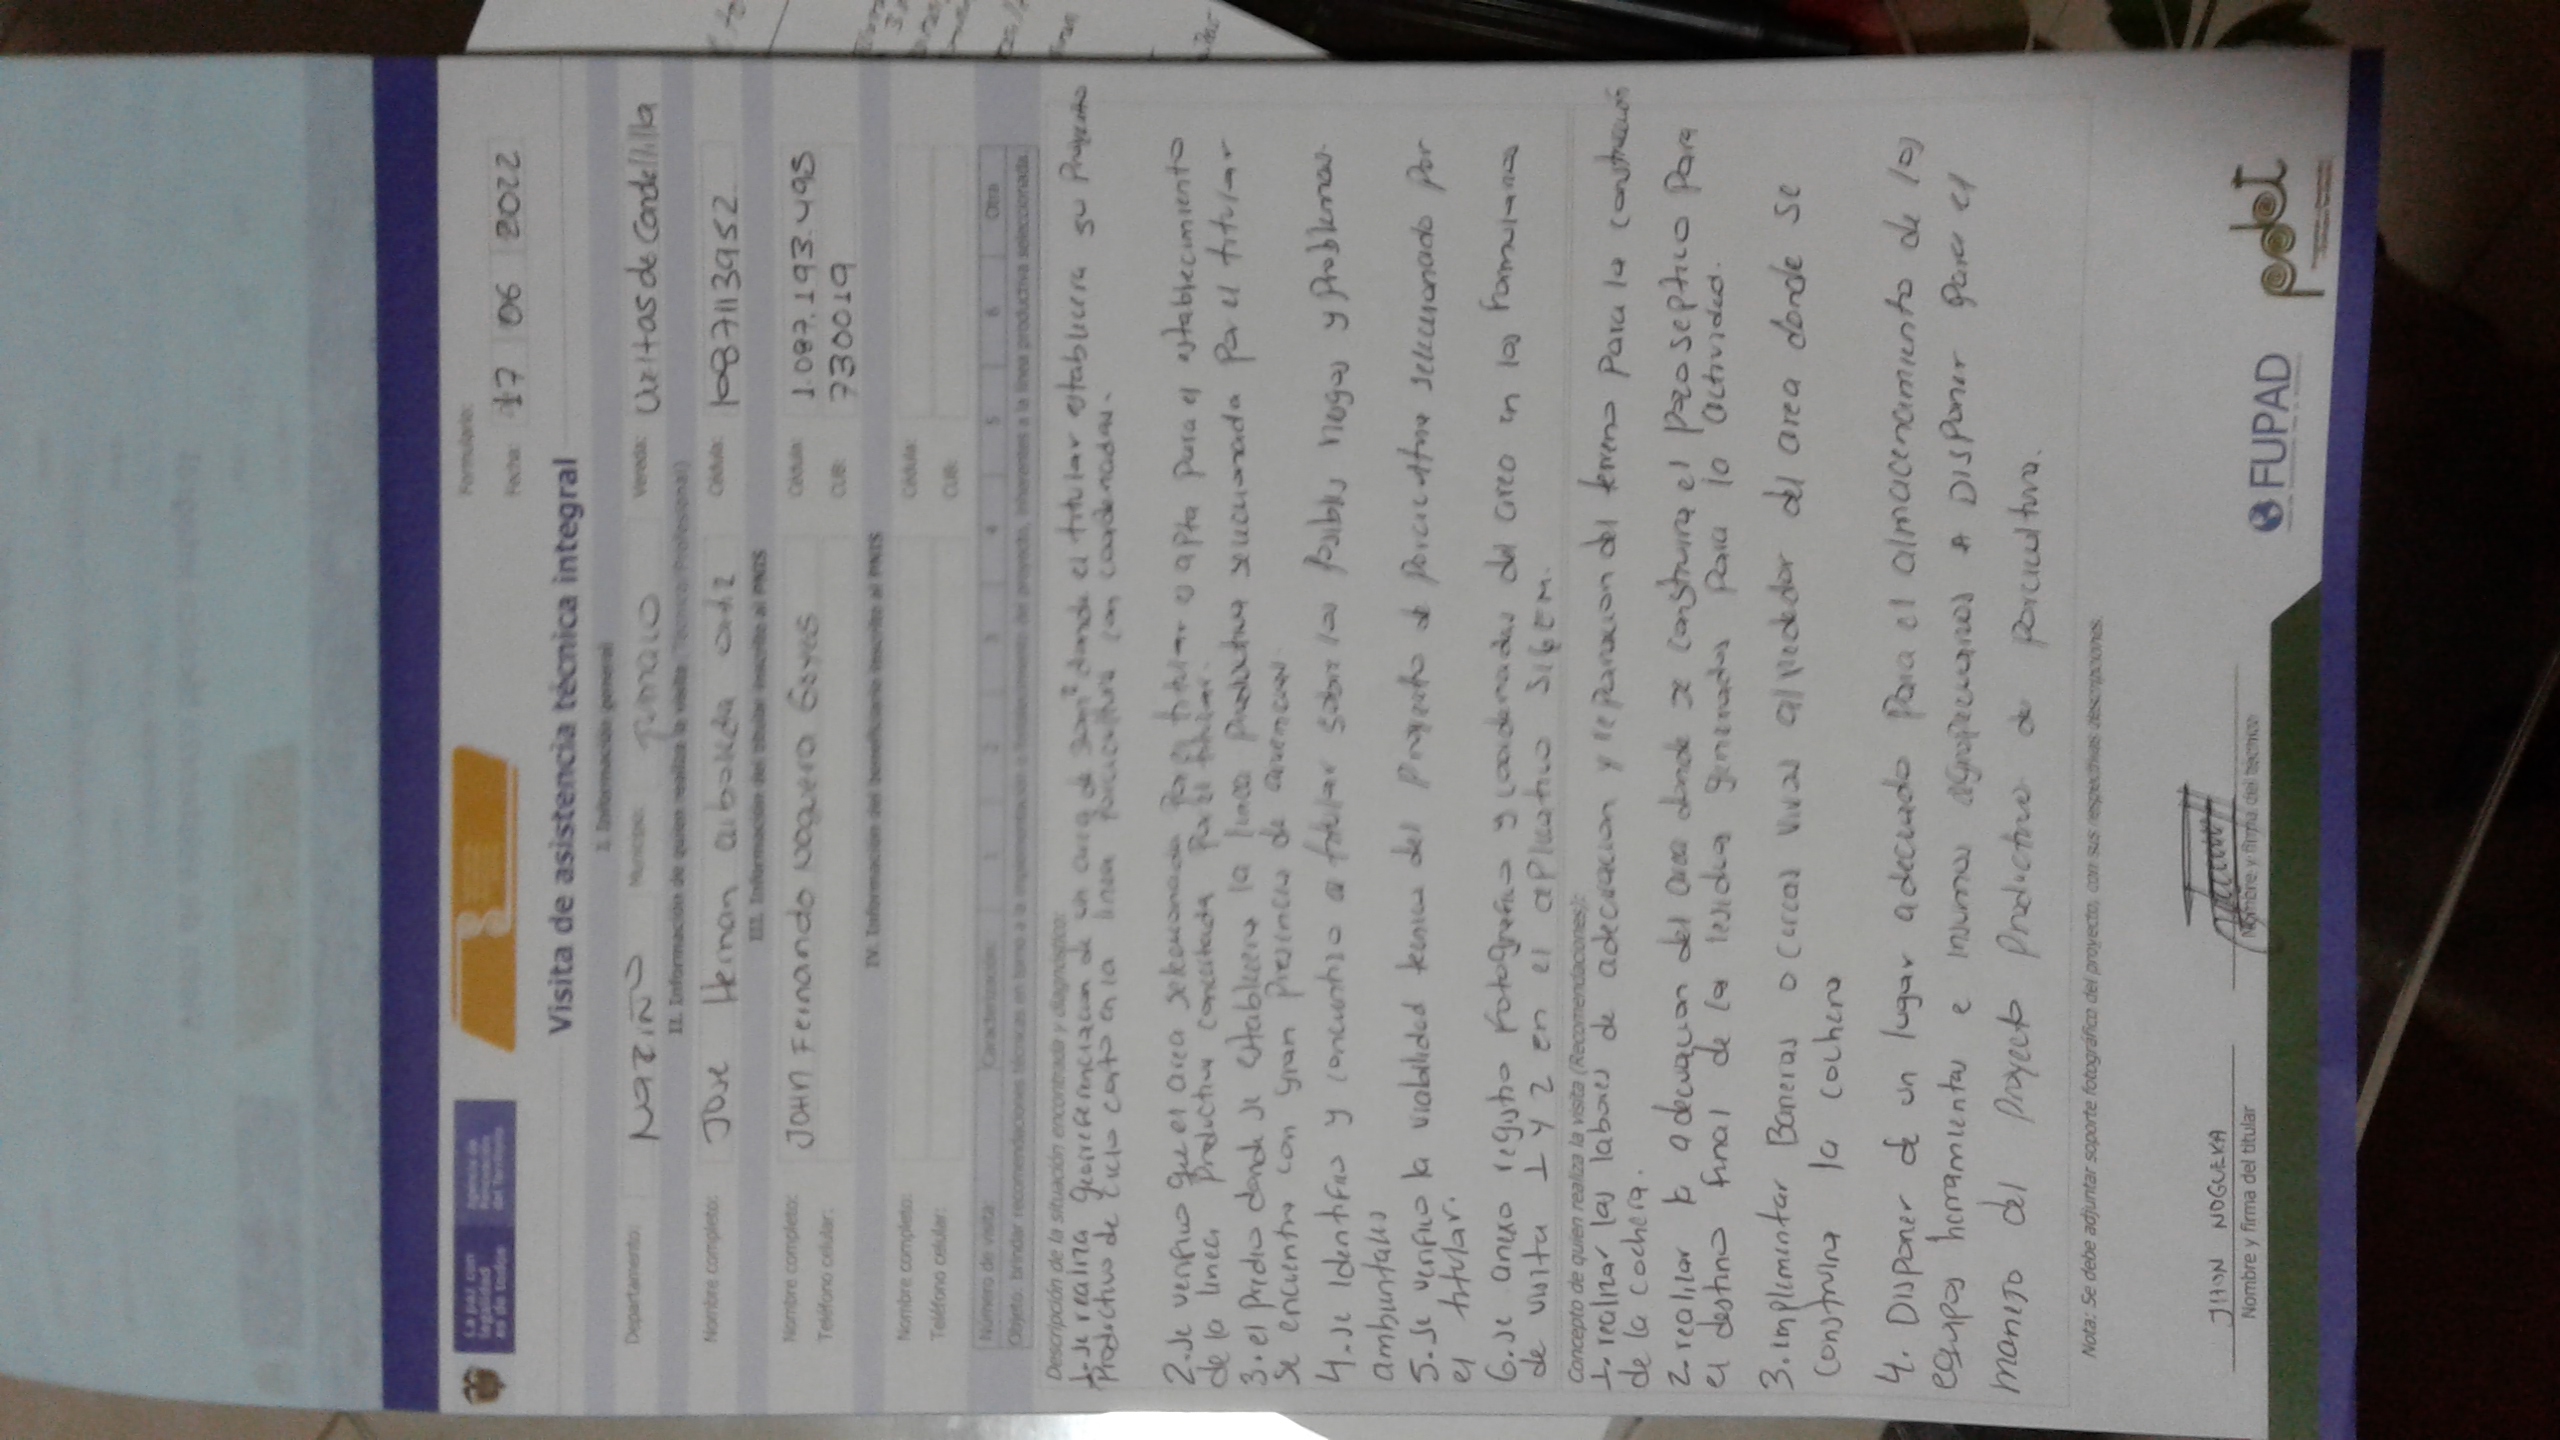 La paz con
legalidad
es de todos
Agencia de
Renovación
del Territorio
Formulario:
Fecha: 17 06 2022
Visita de asistencia técnica integral
I. Información general
Departamento: NARIÑO Municipio: TUMACO Vereda: Curitas de Candelilla
II. Información de quien realiza la visita (Técnico/Profesional)
Nombre completo: Jose Hernan arboleda ortiz Cédula: 1087113952
III. Información del titular inscrito al PNIS
Nombre completo: JOHN Fernando Noguera Cédula: 1.087.193.495
Teléfono celular: CUB: 7330019
IV. Información del beneficiario inscrito al PNIS
Nombre completo: Cédula:
Teléfono celular: CUB:
Número de visita: Caracterización: 1 2 3 4 5 6 Otra
Objeto: brindar recomendaciones técnicas en torno a la implementación o fortalecimiento del proyecto, inherentes a la línea productiva seleccionada
Descripción de la situación encontrada y diagnóstico:
1. se realiza georreferenciacion de un area de donde el titular establecera su Proyecto
Productivo de ciclo corto en la linea porcicultura con coordenadas.
2. se verifico que el area seleccionada por el titular es apta para el establecimiento
de la linea productiva concertada por el titular.
3. el predio donde se establecera la linea productiva seleccionada por el titular
se encuentra con gran presencia de
4. se identifico y concientizo al titular sobre los posibles riesgos y problemas
ambientales
5. se verifico la viabilidad tecnica del proyecto de porcicultura seleccionado por
el titular.
6. se anexo registro fotografico y coordenadas del area en los formularios
de visita 1 y 2 en el aplicativo SIGEM.
Concepto de quien realiza la visita (Recomendaciones):
1. realizar las labores de adecuacion y reparacion del terreno para la construccion
de la cochera.
2. realizar la adecuacion del area donde se construira el pozo septico para
el destino final de los residuos generados para la actividad.
3. implementar Barreras o cercas vivas alrededor del area donde se
construira la cochera
4. Disponer de un lugar adecuado para el almacenamiento de los
equipos herramientas e insumos agropecuarios a Disponer para el
manejo del proyecto productivo de porcicultura.
Nota: Se debe adjuntar soporte fotográfico del proyecto, con sus respectivas descripciones.
JHON NOGUERA
Nombre y firma del titular
Nombre y firma del técnico
FUPAD
PDET